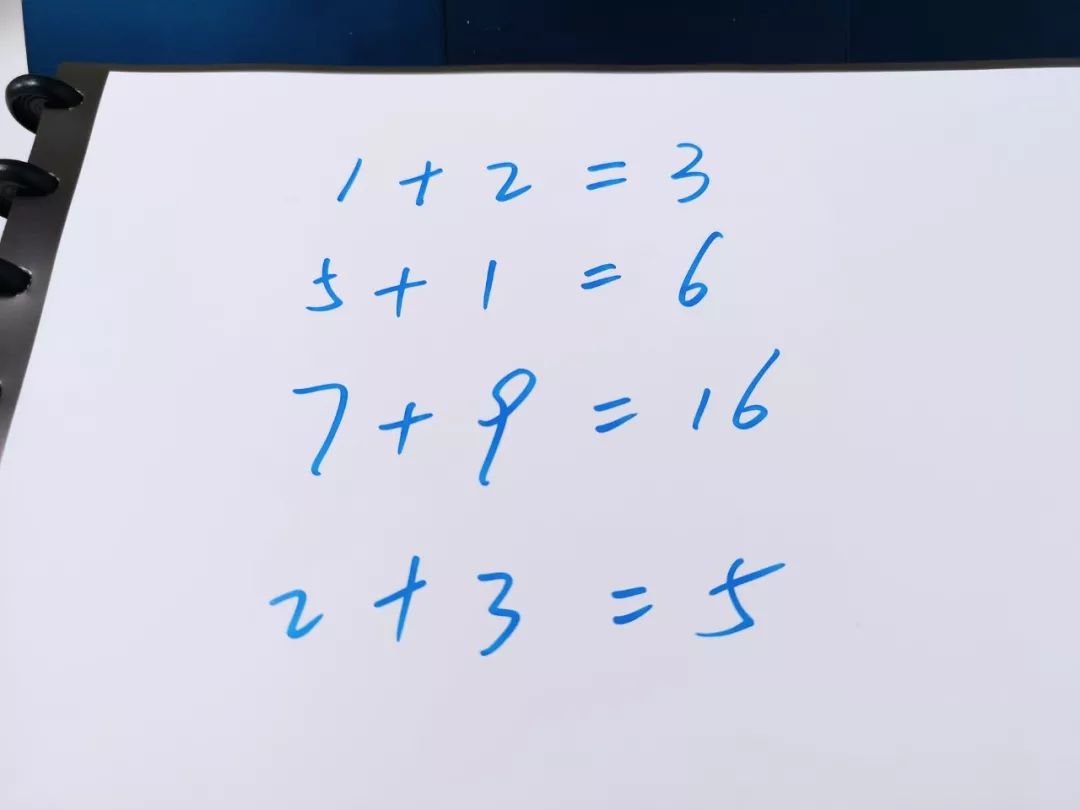 1 + 2 = 3
5 + 1 = 6
7 + 9 = 16
2 + 3 = 5